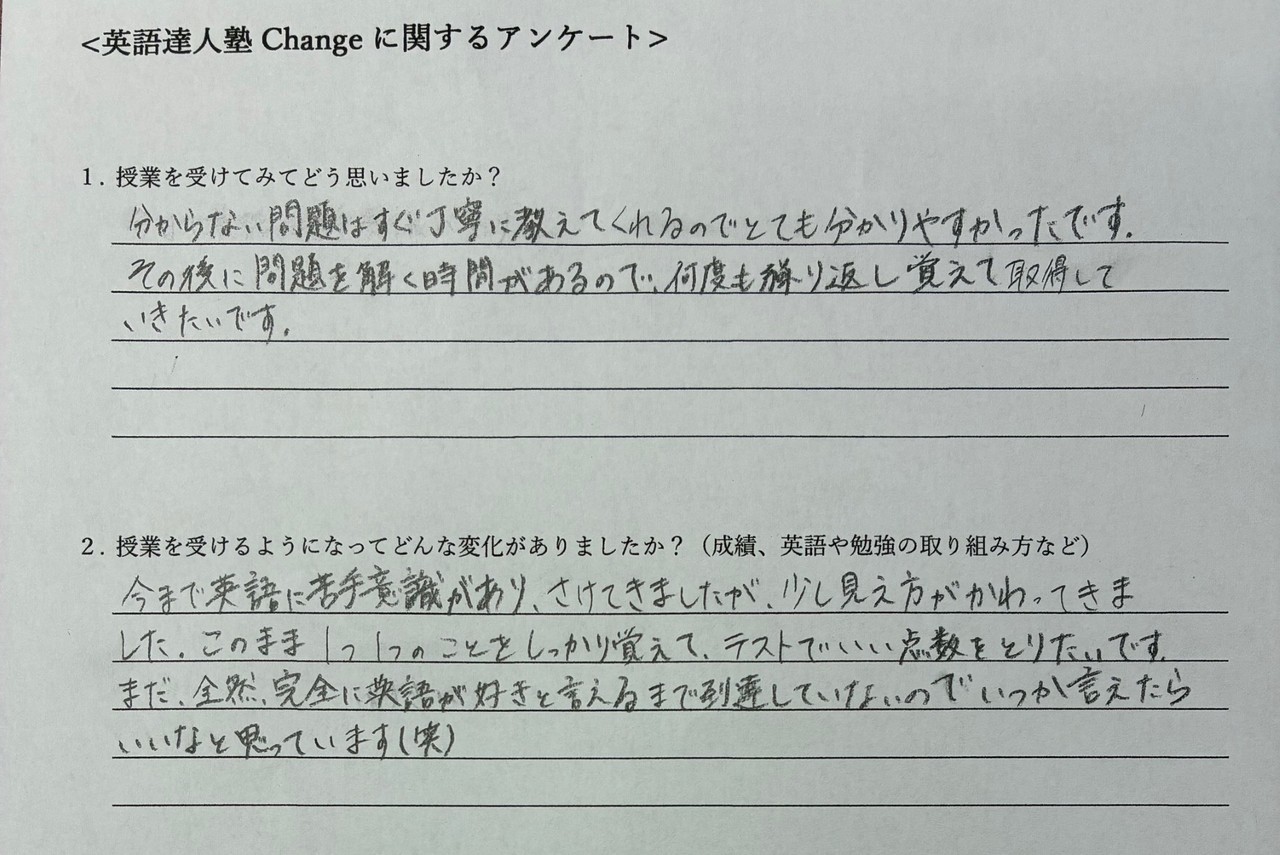 <英語達人塾 Change に関するアンケート>
1. 授業を受けてみてどう思いましたか?
分からない問題はすぐ丁寧に教えてくれるのでとても分かりやすかったです.
その後に問題を解く時間があるので、何度も繰り返し覚えて取得して
いきたいです.
2. 授業を受けるようになってどんな変化がありましたか?(成績、英語や勉強の取り組み方など)
今まで英語に苦手意識があり、さけてきましたが、少し見え方がかわってきま
した. このまま1つ1つのことをしっかり覚えて、テストでいい点数をとりたいです.
まだ、全然、完全に英語が好きと言えるまで到達していないのでいつか言えたら
いいなと思っています(笑)